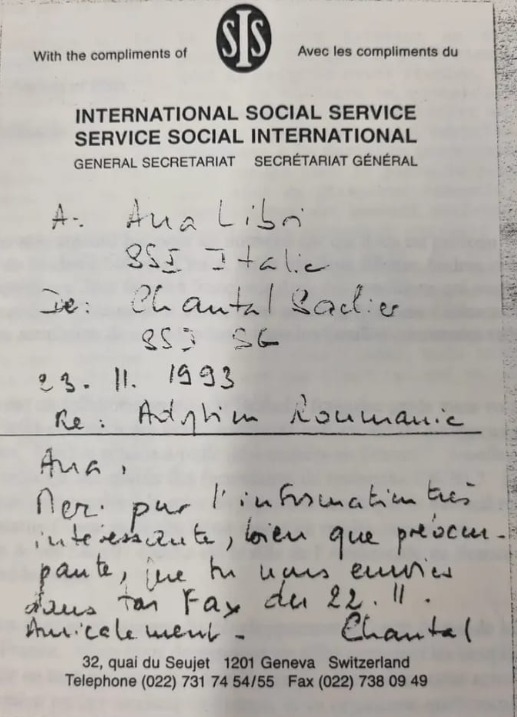 With the compliments of SIS Avec les compliments du
INTERNATIONAL SOCIAL SERVICE
SERVICE SOCIAL INTERNATIONAL
GENERAL SECRETARIAT SECRÉTARIAT GÉNÉRAL
A: Ana Libri
SSI Italie
De: Chantal Saclier
SSI SG
23. 11. 1993
Re: Adoption Roumanie
Ana,
Merci pour l'information très
intéressante, bien que préoccu-
pante, que tu nous envoies
dans ton Fax du 22.11.
Amicalement - Chantal
32, quai du Seujet 1201 Geneva Switzerland
Telephone (022) 731 74 54/55 Fax (022) 738 09 49